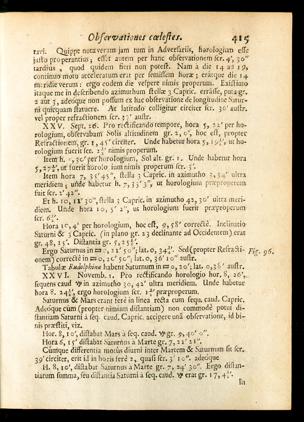 Observationes cœlestes. 415
tavi. Quippe notaveram jam tum in Adversariis, horologium esse
justo properantius; esset autem per hanc observationem scr. 4', 30''
tardius, quod quidem fieri non potest. Nam à die 14 ad 19,
continuo motu acceleratum erat per semissem horæ; eratque die 14
meridie verum: ergo eodem die vespere nimis properum. Existimo
itaque me in describendo azimutho stellæ 3 Capric. errasse, puta gr.
2 aut 3, adeoque non possum ex hac observatione de longitudine Saturni
quicquam statuere. At latitudo colligitur circiter scr. 36' austr.
vel propter refractionem scr. 37' austr.
XXV. Sept. 26. Pro rectificando tempore, hora 5, 22' per horologium,
observabam Solis altitudinem gr. 2, 0', hoc est, propter
Refractionem, gr. 1, 45' circiter. Unde habetur hora 5, 19½', ut horologium
fuerit scr. 2½' nimis properum.
Item h. 5, 30' per horologium, Sol alt. gr. 1. Unde habetur hora
ut fuerit horologium nimis properum scr.
Item hora 7, 35' 45'', stella 3 Capric. in azimutho 2, 34' ultra
meridiem; unde habetur h. 7, 33' 3'', ut horologium præproperum
fuit scr. 2' 42''.
Et h. 10, 11' 30'', stella 3 Capric. in azimutho 42, 30' ultra meridiem.
Unde hora 10, 5' 2'', us horologium fuerit præproperum
scr.
Hora 10, 4' per horologium, hoc est, 9, 58' correctè. Inclinatio
Saturni & Capric. (in plano gr. 23 declinante ad Occidentem) erat
gr. 48, 25'. Distantia gr.
Ergo Saturnus in 11' 50''; lat. 0, Sed (propter Refractionem)
correctè in 0, 26' 50'' lat. 0, 36' 10'' austr.
Fig. 96.
Tabulæ Rudolphinæ habent Saturnum in 0, 20'; lat. 0, 36' austr.
XXVI. Novemb. 1. Pro rectificando horologio hor. 8, 26',
sequens caud. in azimutho 30, 42' ultra meridiem. Unde habetur
hora 8. ergo horologium scr. præproperum.
Saturnus & Mars erant ferè in linea recta cum sequ. caud. Capric.
Adeoque cùm (propter nimiam distantiam) non commodè potui distantiam
Saturni à seq. caud. Capric. accipere unâ observatione, id binis
præstiti, viz.
Hor. 8, 10', distabat Mars à seq. caud. gr. 9, 40'
Hora 6, 15' distabat Saturnus à Marte gr. 7, 21' 21''.
Cùmque differentia motus diurni inter Martem & Saturnum sit scr.
39' circiter, erit id in horis ferè 2, quasi scr. 3' 10''. adeoque
H. 8, 10', distabat Saturnus à Marte gr. 7, 24' 30''. Ergo distantiarum
summa, seu distantia Saturni à seq. caud. erat gr. 17,
In